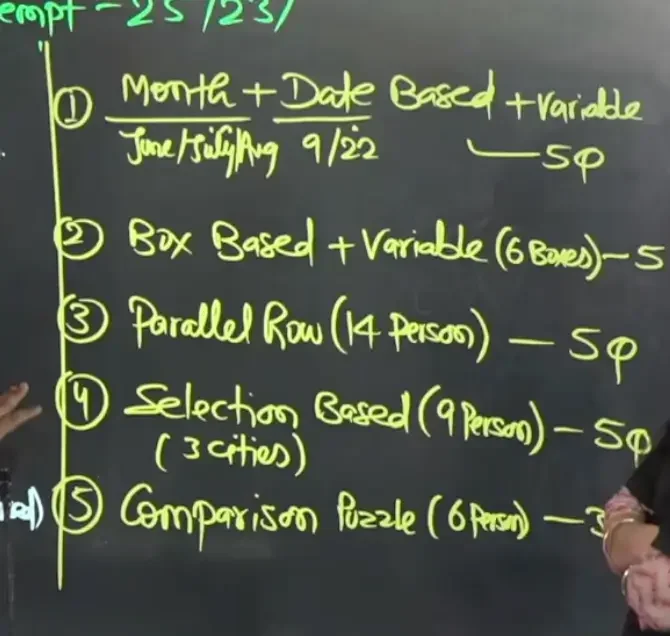 empt - 25/23/
① Month + Date Based + Variable
June/July/Aug 9/22 — 5Q
② Box Based + Variable (6 Boxes) - 5
③ Parallel Row (14 Person) - 5Q
④ Selection Based (9 Person) - 5Q
(3 cities)
⑤ Comparison Puzzle (6 Person) - 3